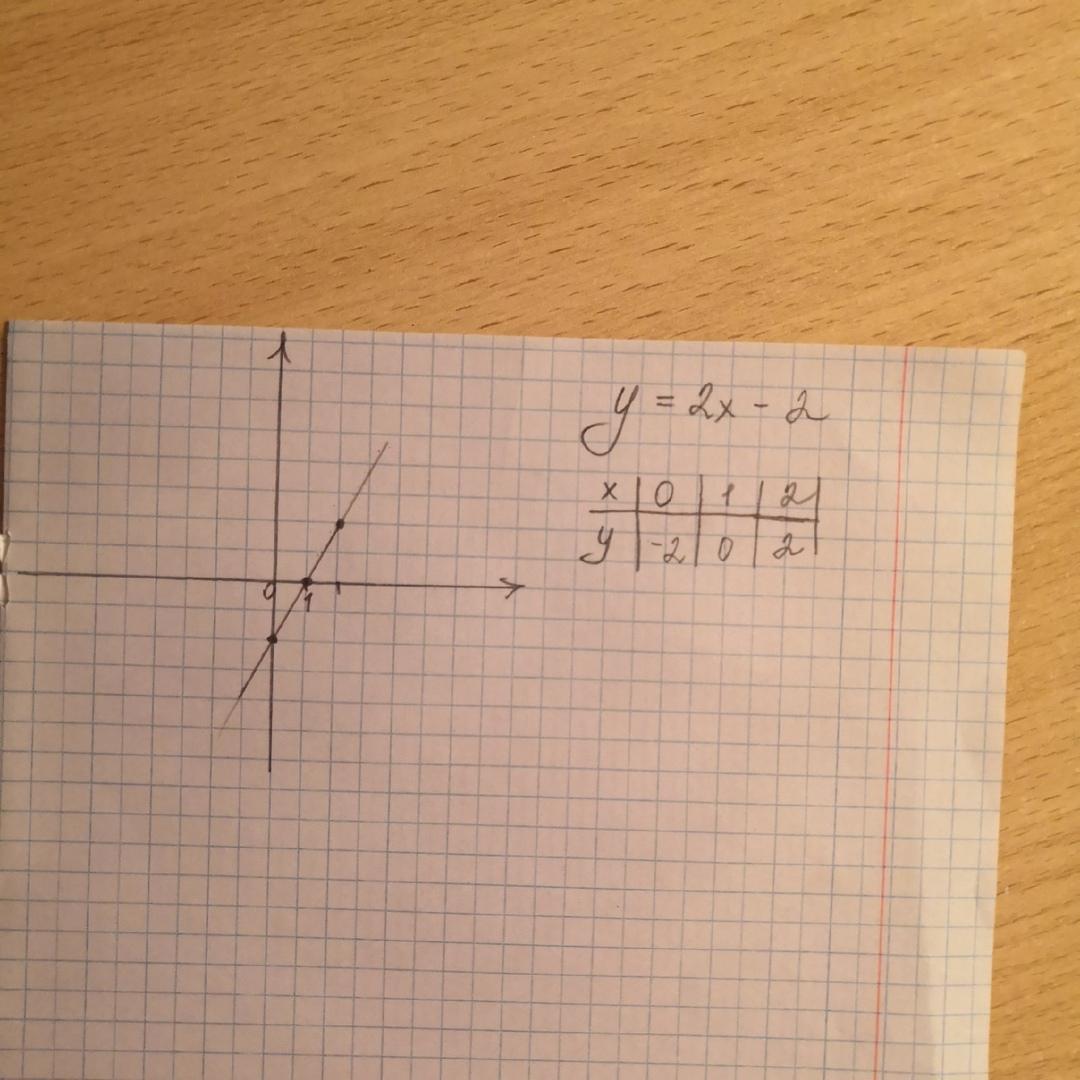 y = 2x - 2
x | 0 | 1 | 2 |
y | -2 | 0 | 2 |
0 1